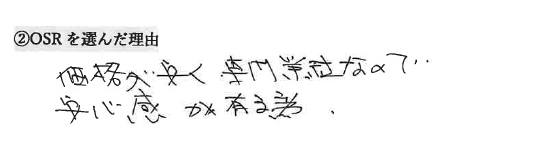 ②OSRを選んだ理由
価格が安く専門業社なので
安心感が有る為.